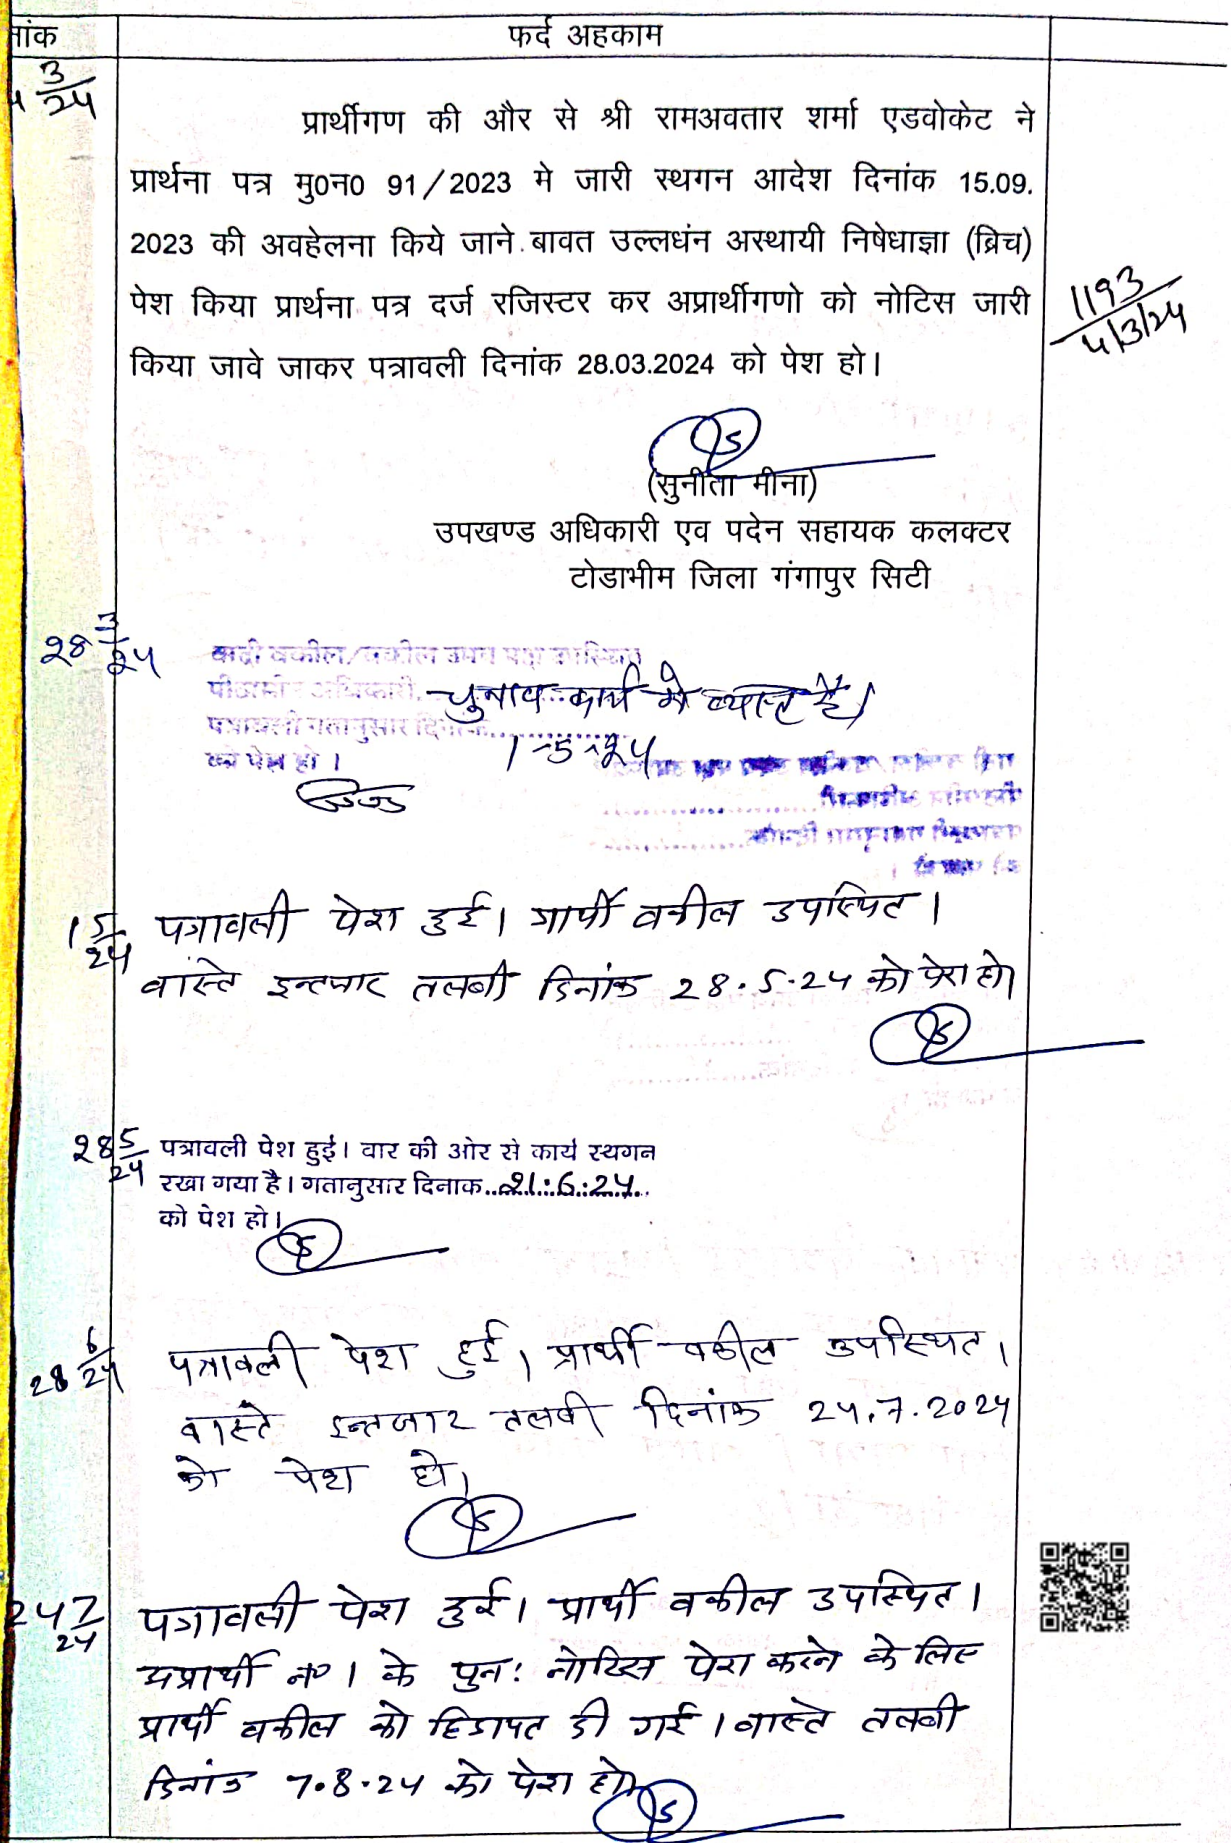 नांक
फर्द अहकाम
4 3/24
प्रार्थीगण की और से श्री रामअवतार शर्मा एडवोकेट ने
प्रार्थना पत्र मु0न0 91/2023 मे जारी स्थगन आदेश दिनांक 15.09.
2023 की अवहेलना किये जाने बावत उल्लधंन अस्थायी निषेधाज्ञा (ब्रिच)
पेश किया प्रार्थना पत्र दर्ज रजिस्टर कर अप्रार्थीगणो को नोटिस जारी
किया जावे जाकर पत्रावली दिनांक 28.03.2024 को पेश हो।
1193
4/3/24
(सुनीता मीना)
उपखण्ड अधिकारी एव पदेन सहायक कलक्टर
टोडाभीम जिला गंगापुर सिटी
28 3/24
वादी वकील/वकील उभय पक्ष उपस्थित
पीठासीन अधिकारी. चुनाव कार्य मे व्यस्त है।
पत्रावली गतानुसार दिनांक 1-5-24
को पेश हो ।
1 5/24 पत्रावली पेश हुई। प्रार्थी वकील उपस्थित।
वास्ते इन्तजार तलबी दिनांक 28.5.24 को पेश हो।
28 5/24 पत्रावली पेश हुई। वार की ओर से कार्य स्थगन
रखा गया है। गतानुसार दिनाक..21.6.24..
को पेश हो।
28 6/24 पत्रावली पेश हुई। प्रार्थी वकील उपस्थित।
वास्ते इन्तजार तलबी दिनांक 24.7.2024
को पेश हो।
24 7/24 पत्रावली पेश हुई। प्रार्थी वकील उपस्थित।
अप्रार्थी न० 1 के पुन: नोटिस पेश करने के लिए
प्रार्थी वकील को हिदायत दी गई। वास्ते तलबी
दिनांक 7.8.24 को पेश हो।